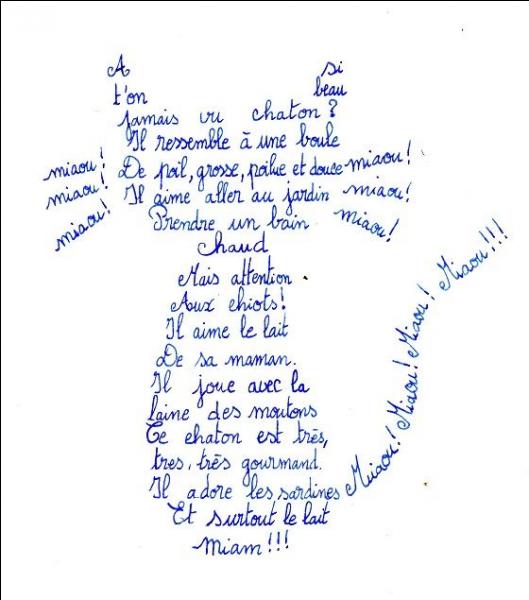 A si
t'on beau
jamais vu chaton?
Il ressemble à une boule
miaou! De poil, grosse, poilue et douce miaou!
miaou! Il aime aller au jardin miaou!
miaou! Prendre un bain miaou!
Chaud
Mais attention.
Aux chiots!
Il aime le lait
De sa maman.
Il joue avec la
laine des moutons
Ce chaton est très,
tres, très gourmand.
Il adore les sardines Miaou! Miaou! Miaou! Miaou!!!
Et surtout le lait
Miam!!!